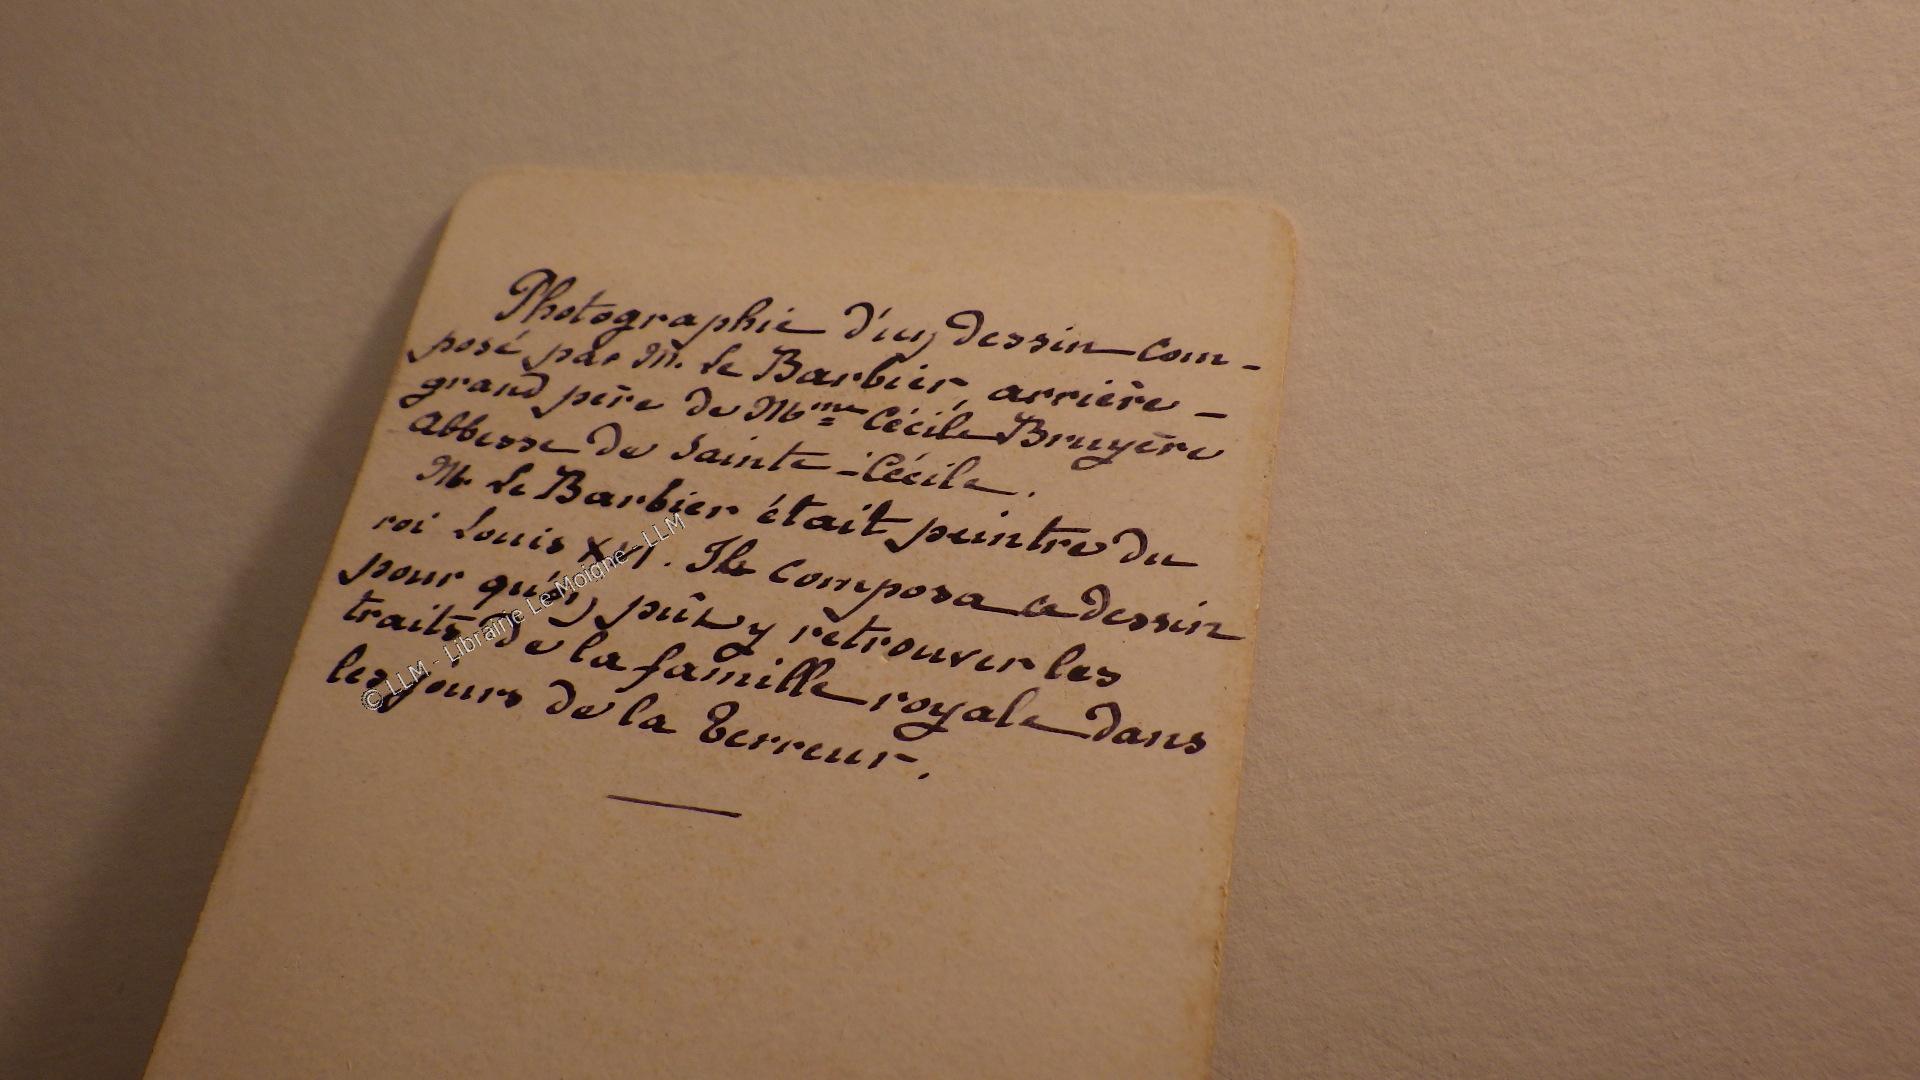 Photographie d'un dessin com-
posé par M. Le Barbier, arrière-
grand père de Mme Cécile Bruyère
Abbesse de Sainte-Cécile.
M. Le Barbier était peintre du
roi Louis XVI. Il composa ce dessin
pour qu'on pût y retrouver les
traits de la famille royale dans
les jours de la Terreur.
© LLM - Librairie Le Moigne - LLM